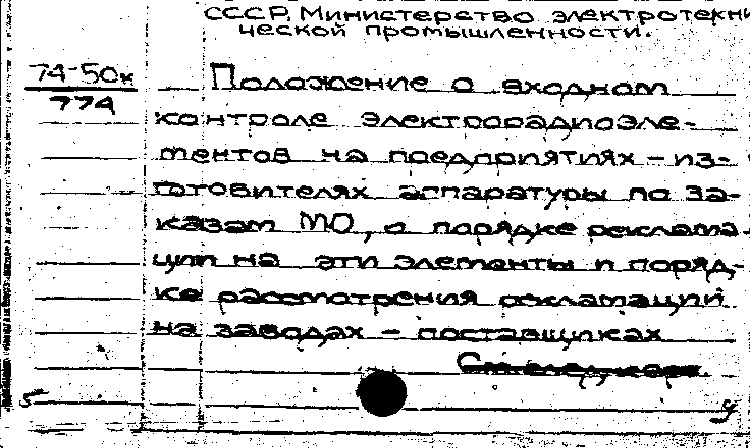 СССР. Министерство электротехни
ческой промышленности.
74-50к
774
Положение о входном
контроле электрорадиоэле-
ментов на предприятиях - из-
готовителях аппаратуры по за-
казам МО, о порядке реклама-
ции на эти элементы и поряд-
ке рассмотрения рекламаций
на заводах - поставщиках
См. след. карт.
5